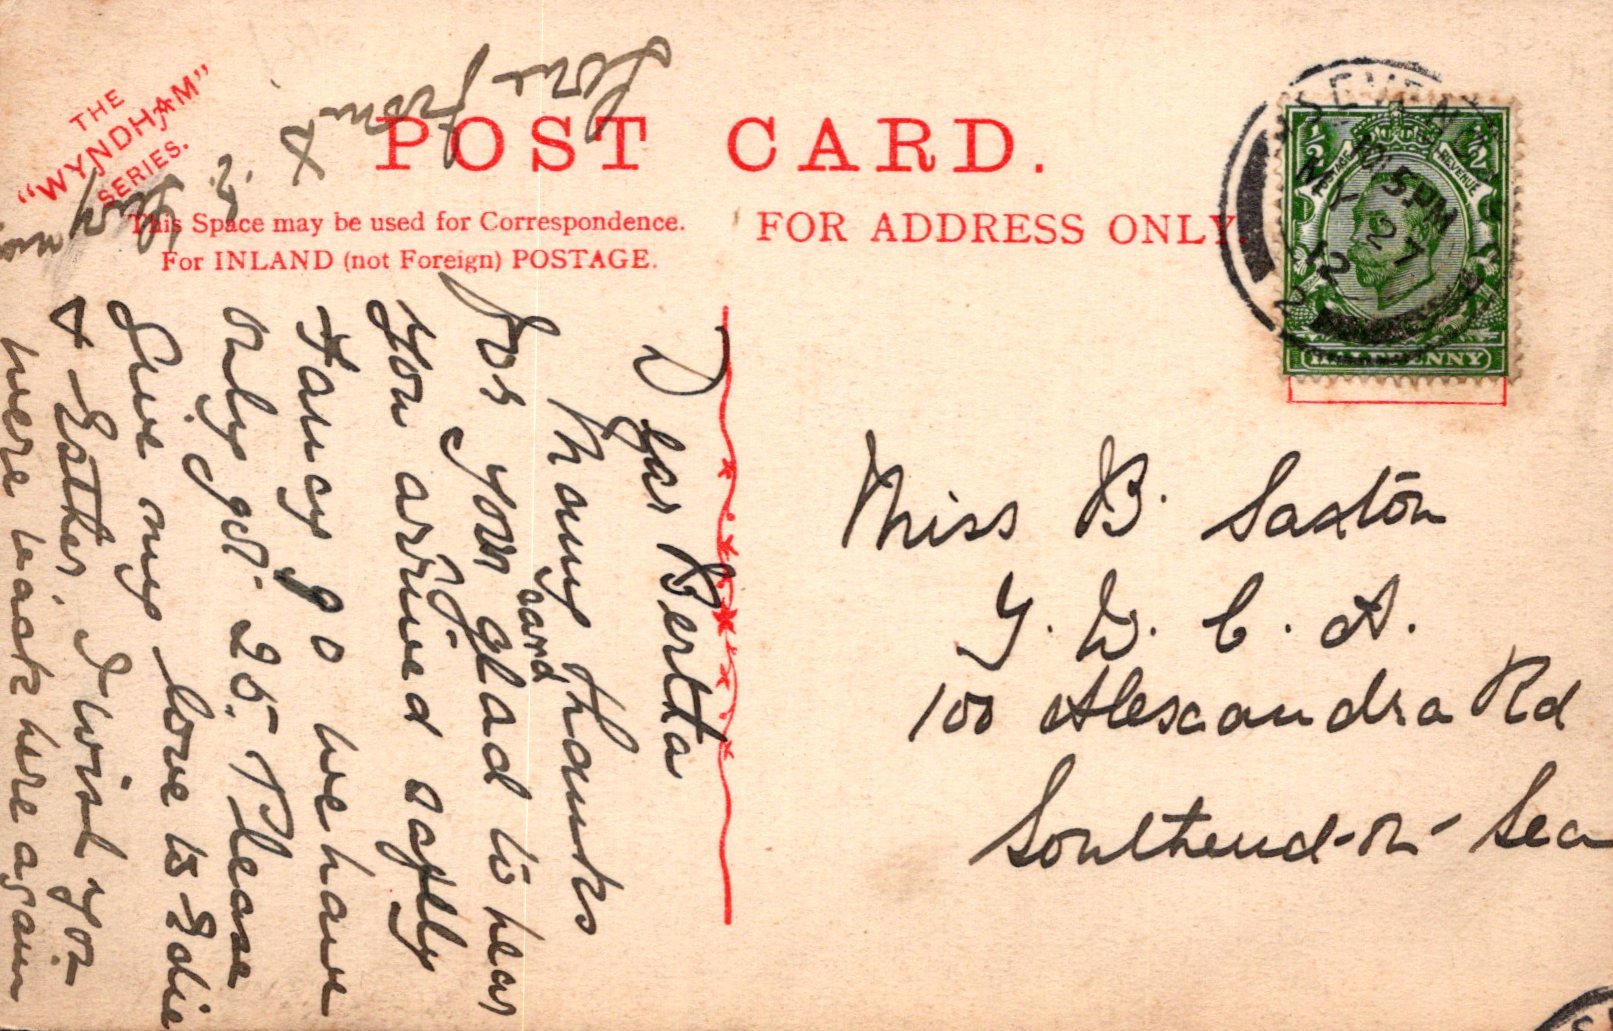 THE
"WYNDHAM"
SERIES.
POST CARD.
This Space may be used for Correspondence.
For INLAND (not Foreign) POSTAGE.
FOR ADDRESS ONLY.
SEVEN
5 PM
MY 27
12
POSTAGE REVENUE
½ ½
Miss B. Saxton
Y. W. C. A.
100 Alexandra Rd
Southend-on-Sea
Dear Bertha
Many thanks
for your card
glad to hear
You arrived safely
Fancy go we have
only got 25. Please
Give my love to Edie
& Esther, I wish you
were back here again
Love from